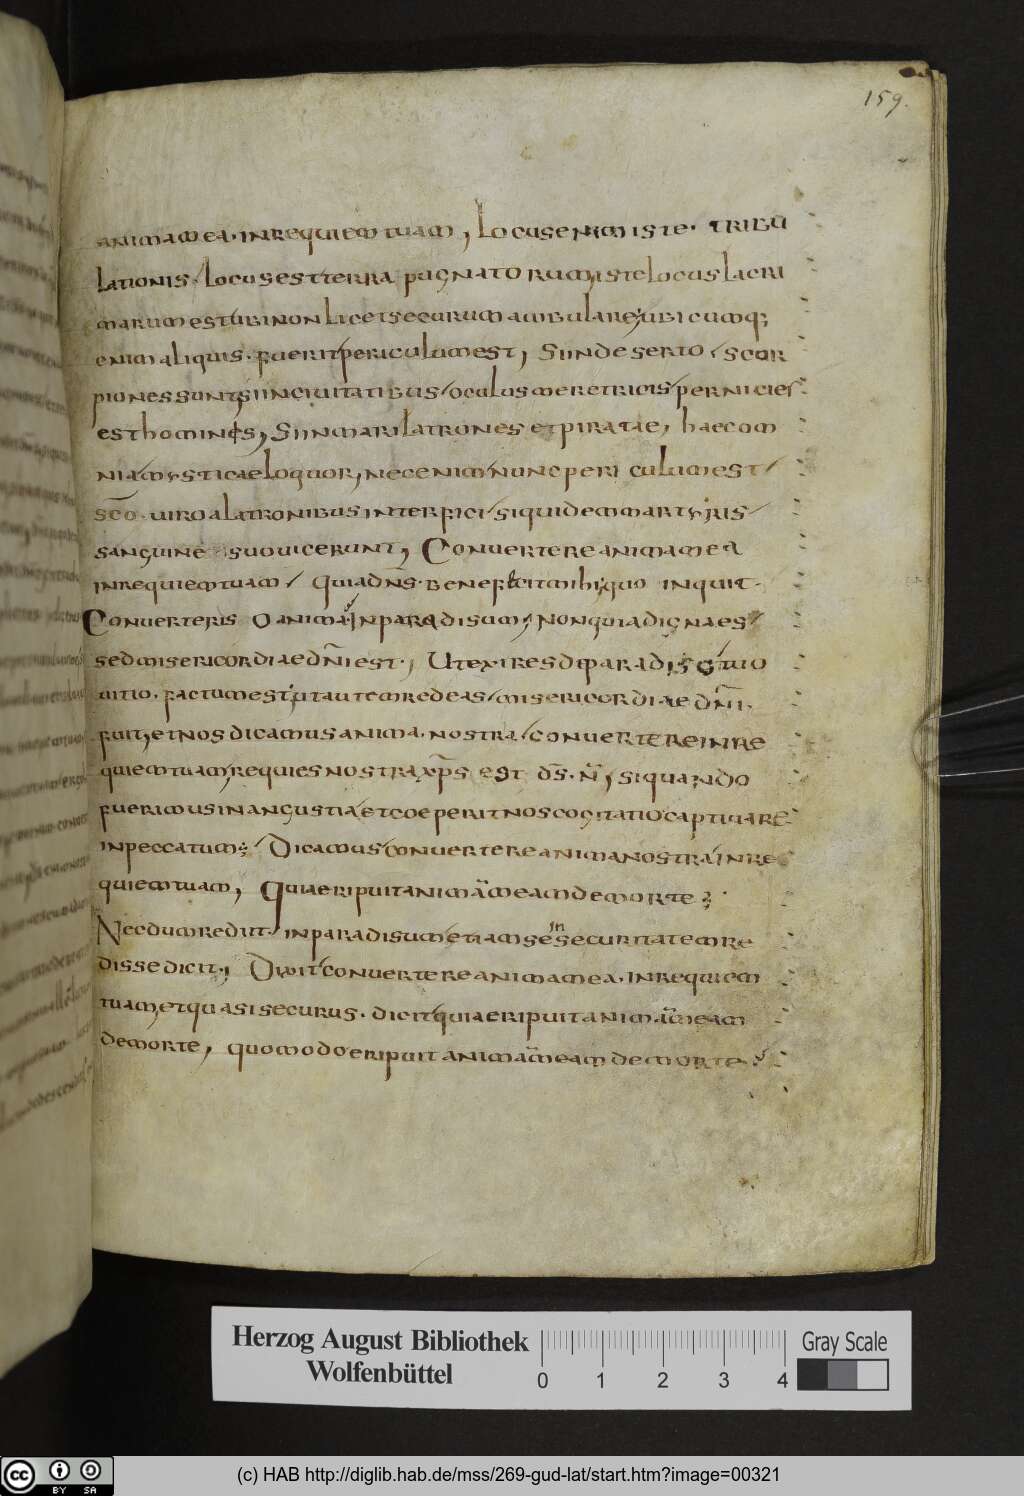 159.
anima mea. in requiem tuam, Locus enim iste. tribu
lationis / locus est terra pugnatorum, iste locus lacri
marum est / ubi non licet securum ambulare, ubicumq;
enim aliquis. fuerit / periculum est, Si in deserto / scor
piones sunt, si in ciuitatibus / oculus meretricis / pernicies
est hominis, Si in mari latrones et piratae, haec om
nia mystice loquor, nec enim nunc periculum est /
sc̄o. uiro a latronibus interfici / siquidem martyris /
sanguine suo uicerunt, Conuertere anima mea
in requiem tuam / quia dn̄s. benefecit mihi, quo inquit.
Conuerteris o anima, In paradisum, non quia digna es /
sed misericordiae dn̄i est., Ut exires de paradiso / tuo
uitio. factum est, ut autem redeas / misericordiae dn̄i.
fuit, et nos dicamus anima. nostra / conuertere in re
quiem tuam, requies nostra xp̄s est d̄s. n̄r, si quando
fuerimus in angustia / et coeperit nos cogitatio captiuare.
in peccatum; / Dicamus / conuertere anima nostra / in re
quiem tuam, Quia eripuit animā meam de morte;
Necdum rediit. in paradisum, etiam se in securitatem re
disse dicit., Dixit conuertere anima mea. in requiem
tuam, et quasi securus. dicit / quia eripuit animā meam
de morte, quomodo eripuit animā meam de morte
Herzog August Bibliothek
Wolfenbüttel
0 1 2 3 4
Gray Scale
cc BY SA
(c) HAB http://diglib.hab.de/mss/269-gud-lat/start.htm?image=00321